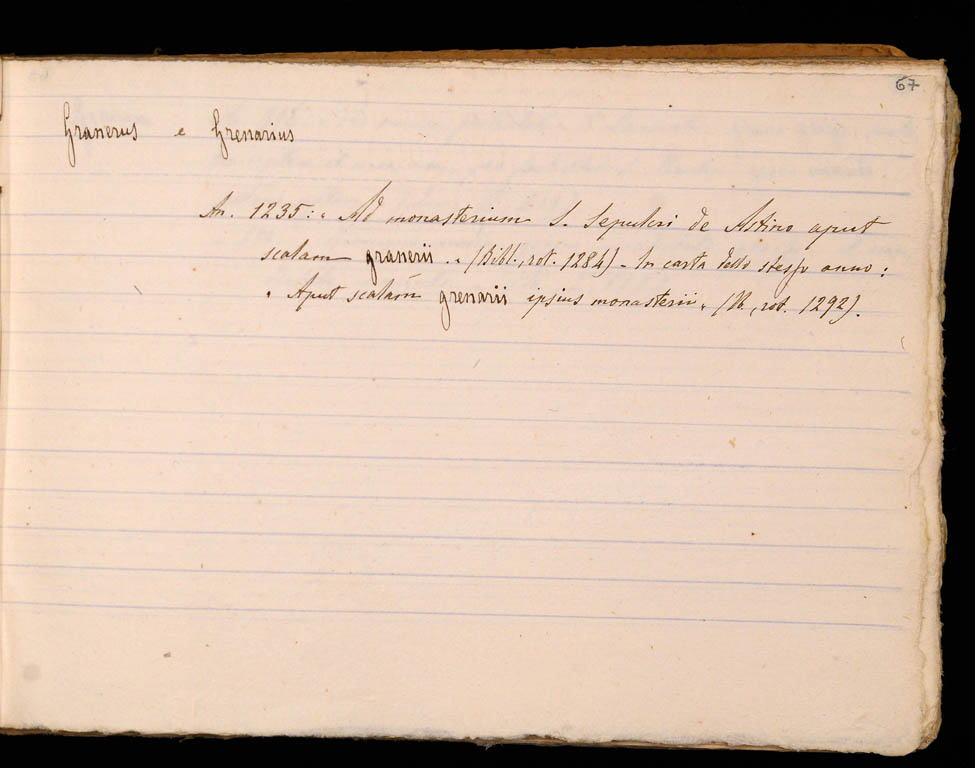 67
Granerus e Grenarius
An. 1235: « Ad monasterium S. Sepulcri de Astino aput
scalam granerii. » (Bibl., rot. 1284). In carta dello stesso anno:
« Aput scalam grenarii ipsius monasterii » (Ib., rot. 1292).